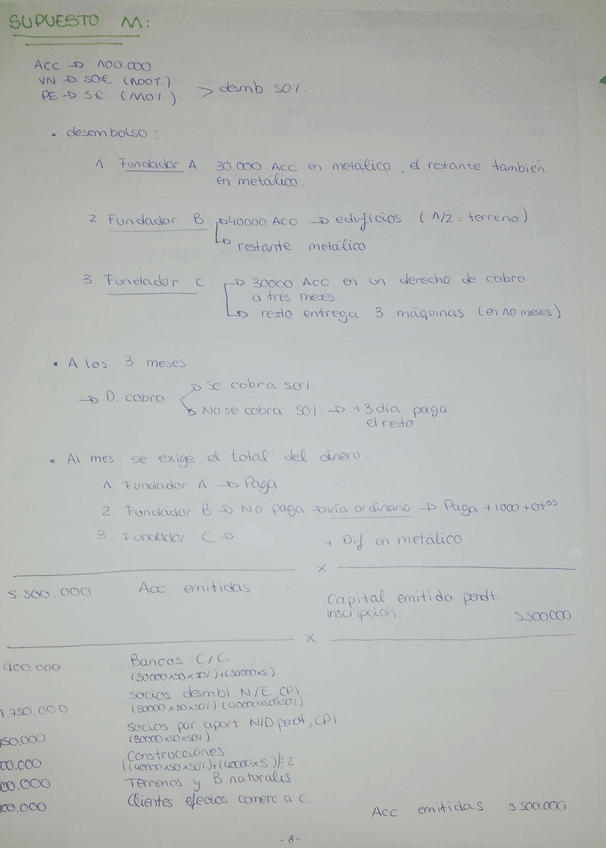 SUPUESTO M:
Acc → 100.000
VN → 50€ (100%)
PE → 5€ (110%) > desmb 50%.
• desembolso:
1. Fundador A 30.000 Acc en metálico, el restante también
en metálico.
2. Fundador B → 40000 Acc → edificios (1/2 = terreno)
→ restante metálico
3. Fundador C: → 30000 Acc en un derecho de cobro
a tres meses.
→ resto entrega 3 máquinas (en 10 meses)
• A los 3 meses:
→ D. cobro → se cobra 50%.
→ No se cobra 50% → +3 día paga
el resto
• Al mes se exige el total del dinero:
1. Fundador A → Paga
2. Fundador B → No paga → vía ordinario → Paga + 1000 + Gtos
3. Fundador C → + Dif en metálico
x
5.500.000 Acc. emitidas
Capital emitido pendt.
inscripción 5.500.000
x
900.000 Bancos C/C
socios desmbl N/E, CPI
1.750.000 (30000x50x50%) (40000x50x50%)
socios por aport. N/D pendt, CPI
50.000 (30000x50x50%)
Construcciones
00.000 ((40000x50x50%)+(40000x5)):2
00.000 Terrenos y B. naturales
00.000 Clientes efectos comerc. a c.
Acc emitidas 5.500.000
-8-